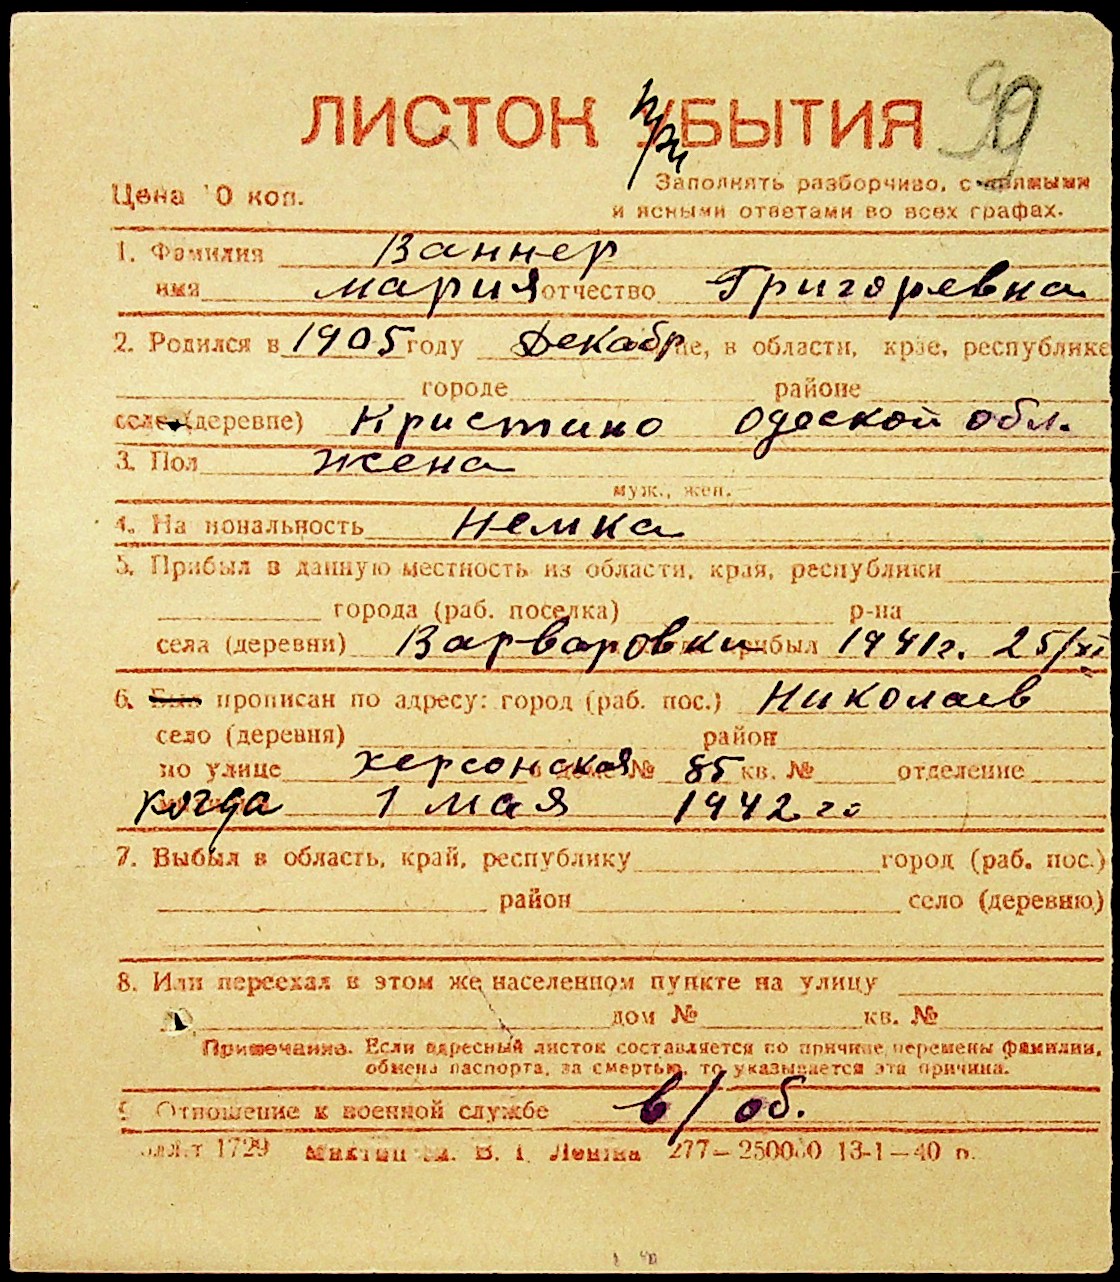 99
ЛИСТОК при УБЫТИЯ
Цена 10 коп.
Заполнять разборчиво, с прямыми
и ясными ответами во всех графах.
1. Фамилия Ваннер
имя Мария отчество Григоревна
2. Родился в 1905 году Декабр в области, крае, республике
городе районе
селе (деревне) Кристино Одеской обл.
3. Пол жена
муж., жен.
4. Национальность Немка
5. Прибыл в данную местность из области, края, республики
города (раб. поселка) р-на
села (деревни) Варваровки прибыл 1941г. 25/XI
6. Был прописан по адресу: город (раб. пос.) Николаев
село (деревня) район
по улице Херсонская в доме № 85 кв. № отделение
когда 1 мая 1942 го
7. Выбыл в область, край, республику город (раб. пос.)
район село (деревню)
8. Или переехал в этом же населенном пункте на улицу
дом № кв. №
Примечание. Если адресный листок составляется по причине перемены фамилии,
обмена паспорта, за смертью, то указывается эта причина.
9. Отношение к военной службе в/об.
1729 им. В. І. Леніна 277—250000 13-1—40 п.